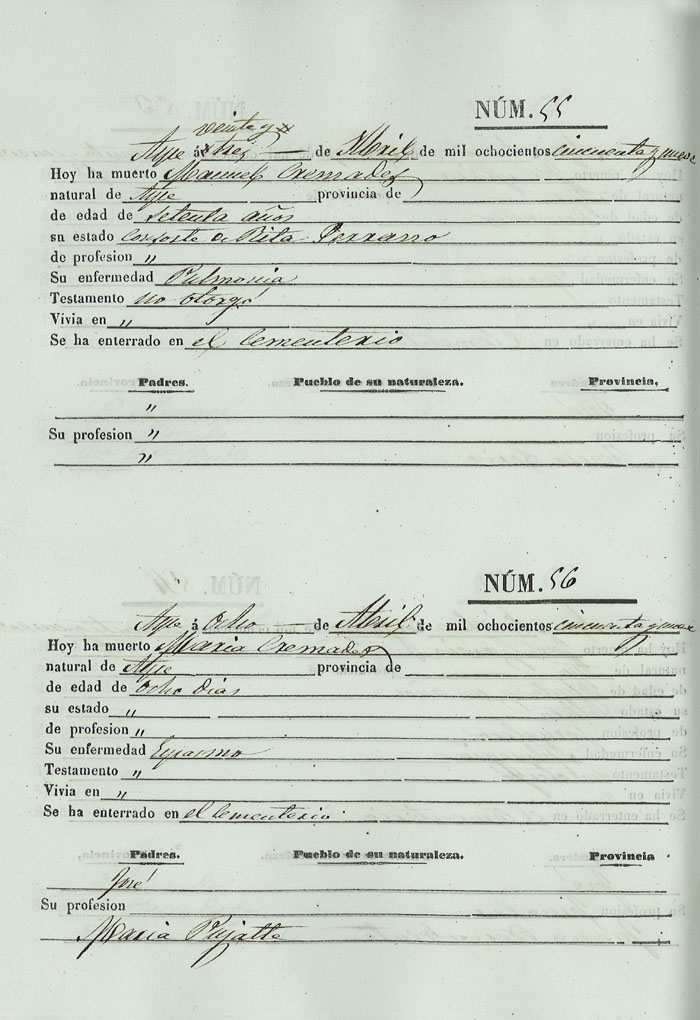 NÚM. 55
veinte y
Aspe á tres de Abril de mil ochocientos cincuenta y nueve
Hoy ha muerto Manuel Cremades
natural de Aspe provincia de
de edad de setenta años
su estado consorte de Rita Serrano
de profesion "
Su enfermedad Pulmonia
Testamento no otorgó
Vivia en "
Se ha enterrado en el Cementerio
Padres. Pueblo de su naturaleza. Provincia,
"
Su profesion "
"
NÚM. 56
Aspe á Ocho de Abril de mil ochocientos cincuenta y nueve
Hoy ha muerto Maria Cremades
natural de Aspe provincia de
de edad de Ocho dias
su estado "
de profesion "
Su enfermedad Espasmo
Testamento "
Vivia en "
Se ha enterrado en el Cementerio
Padres. Pueblo de su naturaleza. Provincia
José
Su profesion
Maria Pujalte